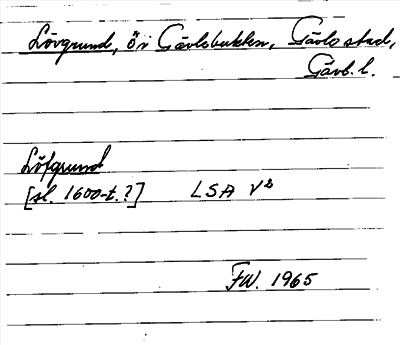 Lövgrund, ö i Gävlebukten, Gävle stad,
Gävl. l.
Löfgrund
[sl. 1600-t.?] LSA V2
FW. 1965